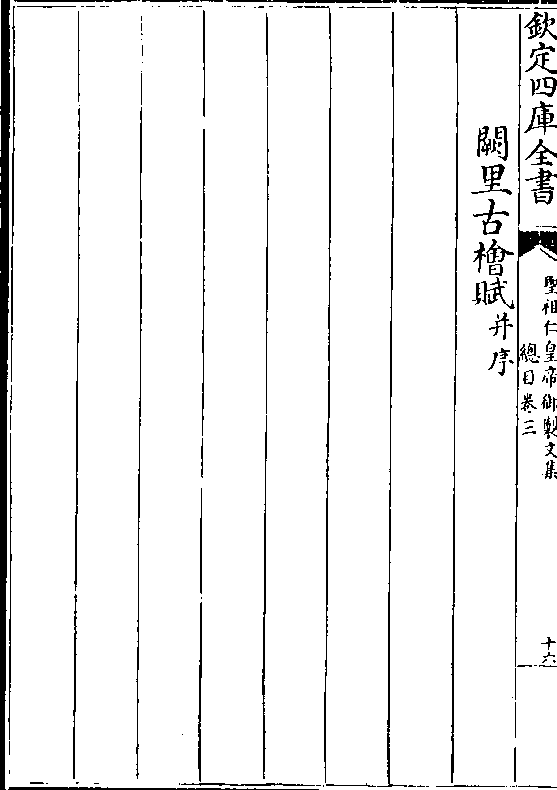 欽定四庫全書
聖祖仁皇帝御製文集
總目卷三
十六
闕里古檜賦并序